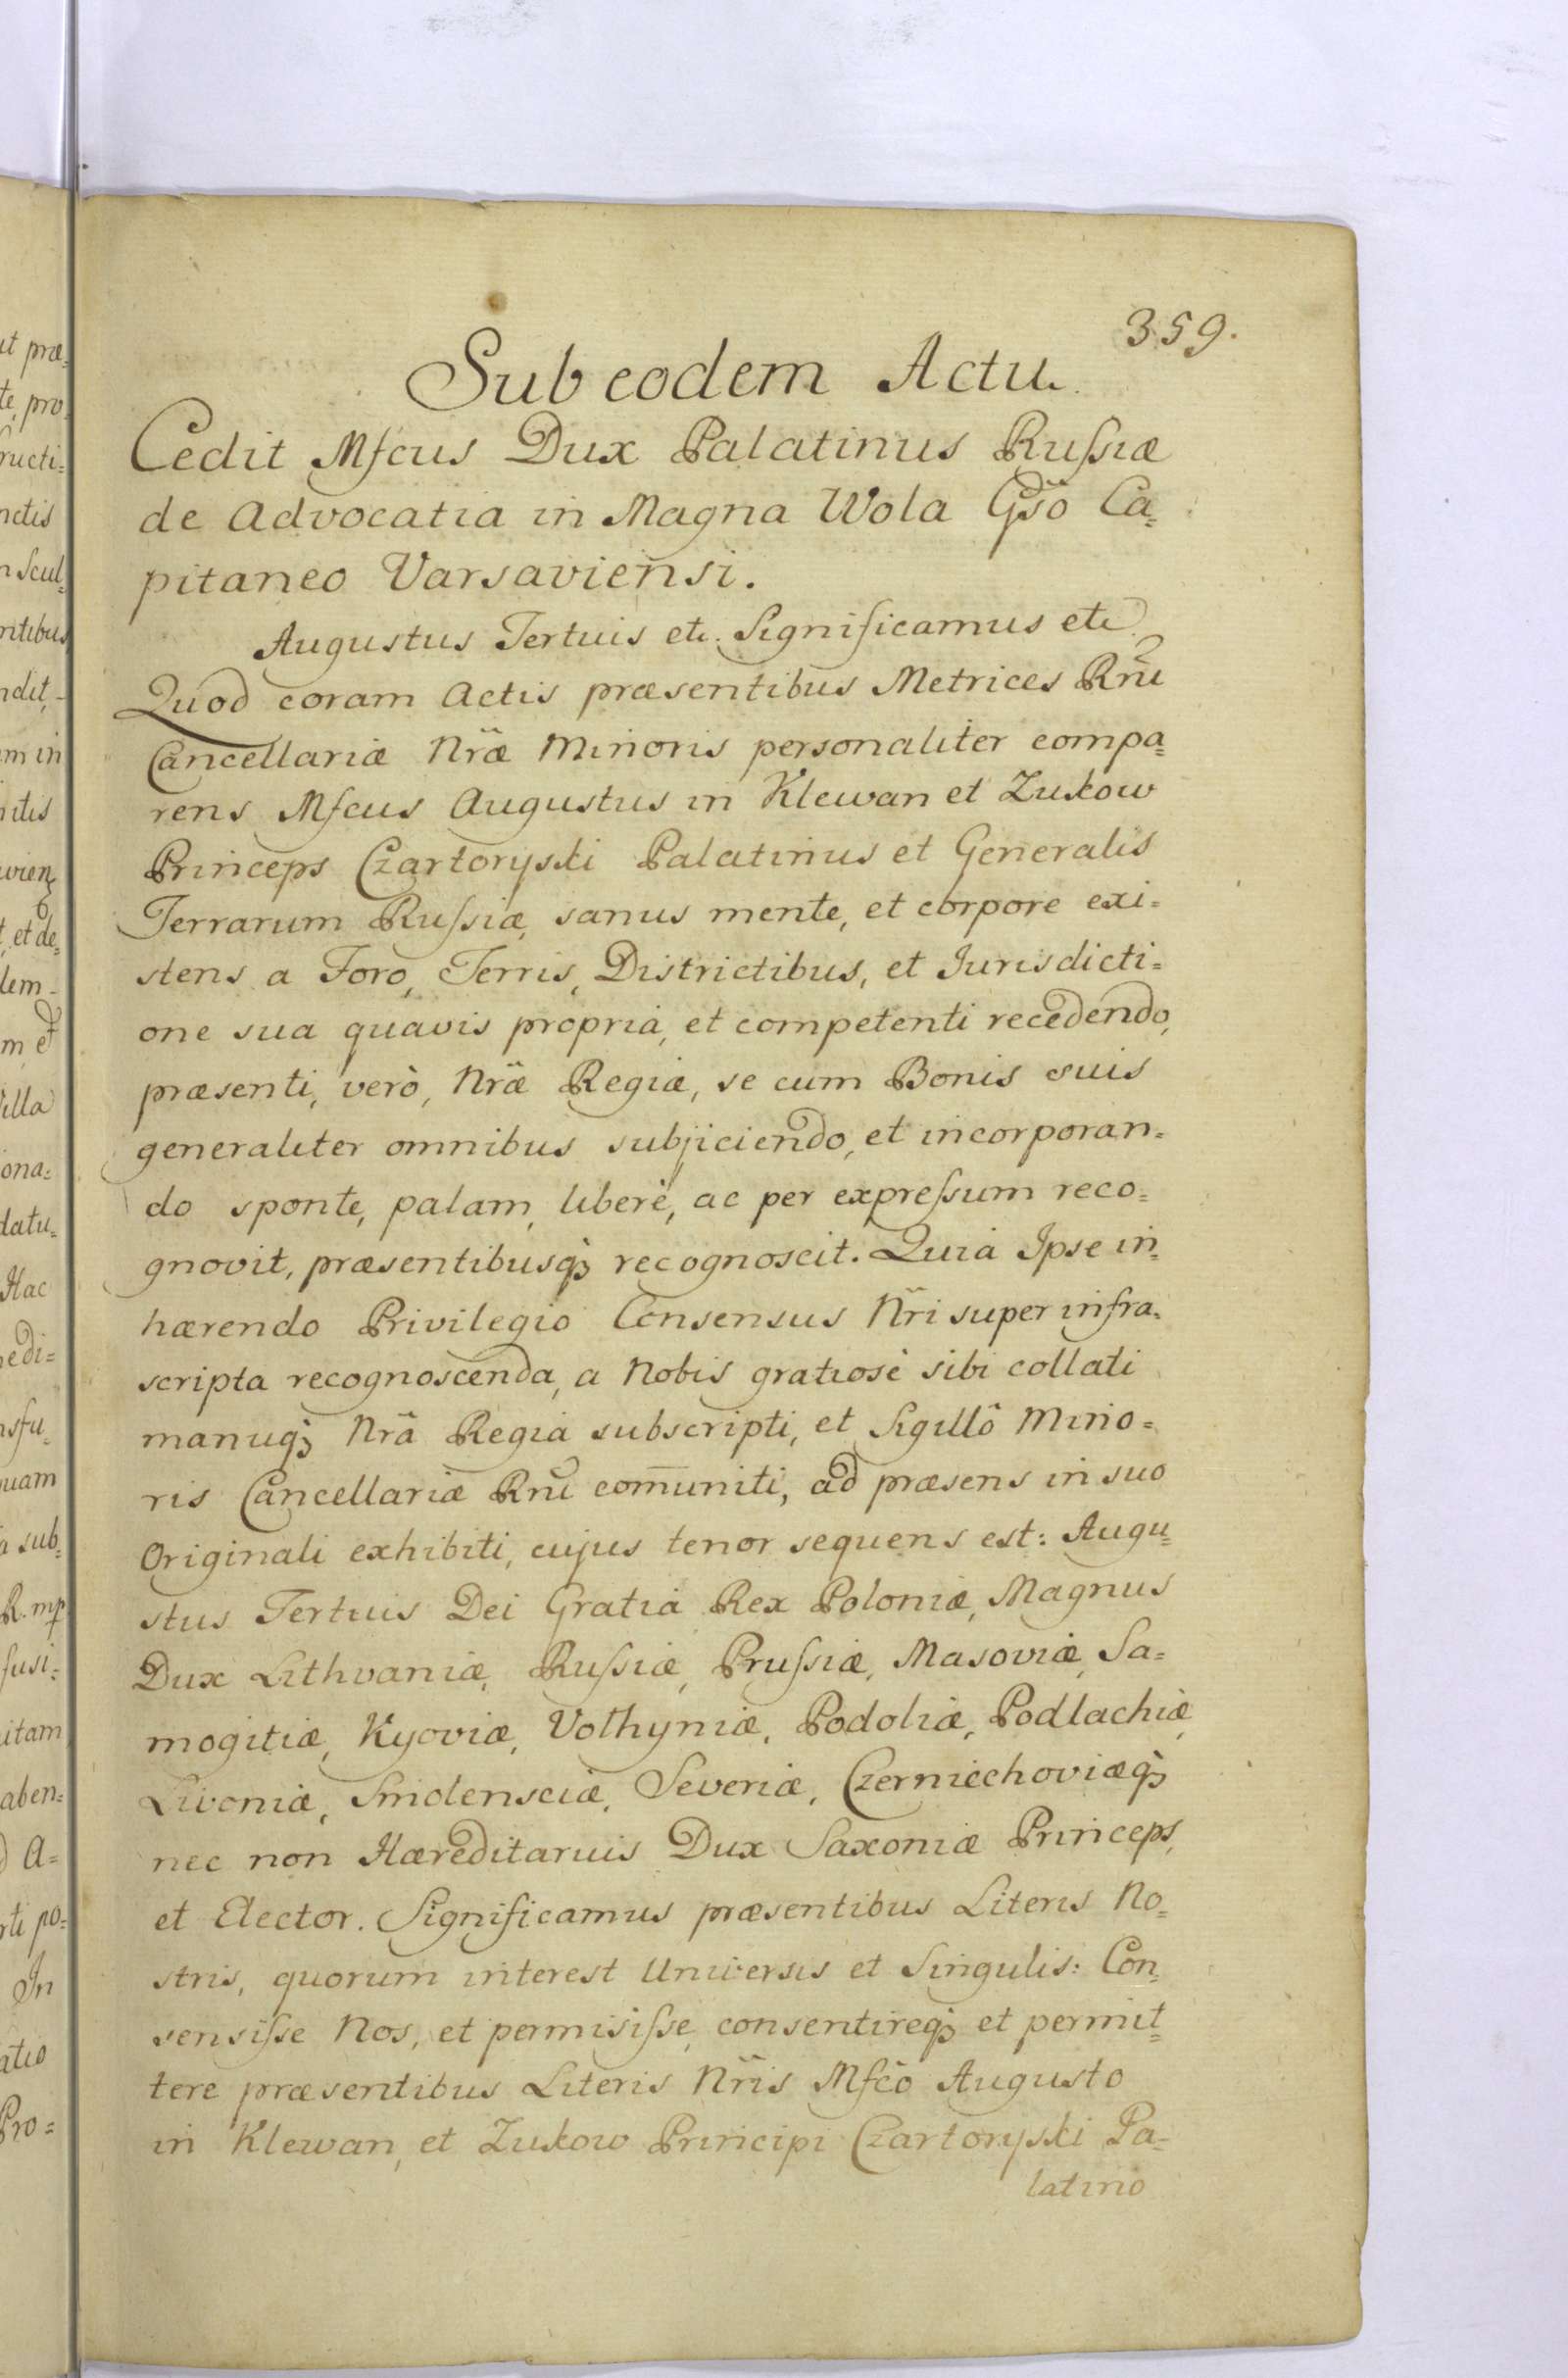 359.
Sub eodem Actu.
Cedit Mfcus Dux Palatinus Russiæ
de Advocatia in Magna Wola Gdso Ca=
pitaneo Varsaviensi.
Augustus Tertius etc. Significamus etc.
Quod coram Actis præsentibus Metrices Rñi
Cancellariæ Nræ Minoris personaliter compa=
rens Mfcus Augustus in Klewan et Zukow
Princeps Czartoryski Palatinus et Generalis
Terrarum Russiæ, sanus mente, et corpore exi=
stens a Foro, Terris, Districtibus, et Jurisdicti=
one sua quavis propria, et competenti recedendo,
præsenti, verò, Nræ Regiæ, se cum Bonis suis
generaliter omnibus subjiciendo, et incorporan=
do sponte, palam, liberè, ac per expressum reco=
gnovit, præsentibusq; recognoscit. Quia Ipse in=
hærendo Privilegio Consensus Nri super infra=
scripta recognoscenda, a Nobis gratiosè sibi collati
manuq; Nrâ Regia subscripti, et Sigillô Mino=
ris Cancellariæ Rñi com̄uniti, ad præsens in suo
Originali exhibiti, cujus tenor sequens est: Augu=
stus Tertius Dei Gratia Rex Poloniæ, Magnus
Dux Lithvaniæ, Russiæ, Prussiæ, Masoviæ, Sa=
mogitiæ, Kyoviæ, Volhyniæ, Podoliæ, Podlachiæ,
Livoniæ, Smolensciæ, Severiæ, Czerniechoviæq;
nec non Hæreditarius Dux Saxoniæ Princeps,
et Elector. Significamus præsentibus Literis No=
stris, quorum interest Universis et Singulis: Con=
sensisse Nos, et permisisse, consentireq; et permit=
tere præsentibus Literis Nris Mfco Augusto
in Klewan, et Zukow Principi Czartoryski Pa=
latino